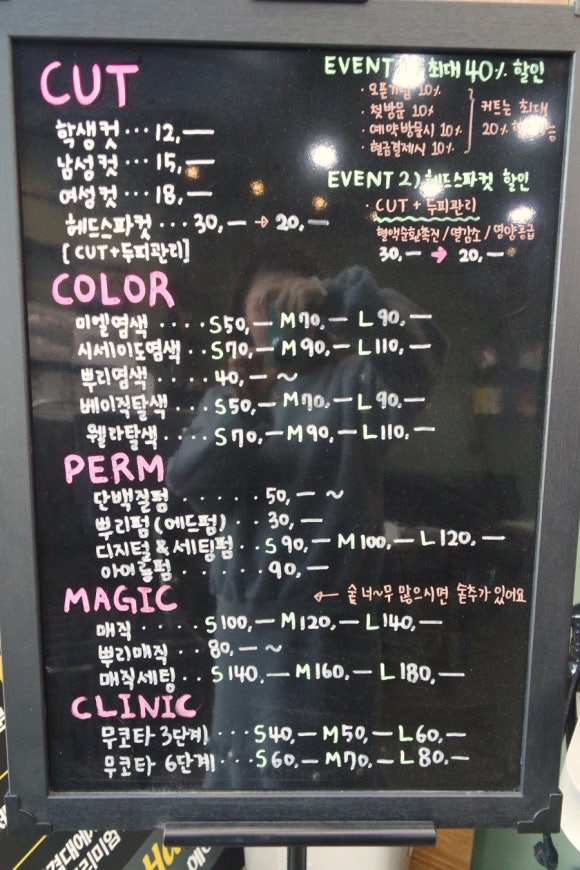 CUT
학생컷 ··· 12,—
남성컷 ··· 15,—
여성컷 ··· 18,—
헤드스파컷 ··· 30,— → 20,—
[CUT+두피관리]
EVENT 최대 40% 할인
· 오픈기념 10%
· 첫방문 10%
· 예약방문시 10%
· 현금결제시 10%
커트는 최대
20%
EVENT 2) 헤드스파컷 할인
· CUT + 두피관리
혈액순환촉진 / 열감소 / 영양공급
30,— → 20,—
COLOR
미엘염색 ···· S50,— M70,— L90,—
시세이도염색 ·· S70,— M90,— L110,—
뿌리염색 ···· 40,— ~
베이직탈색 ··· S50,— M70,— L90,—
웰라탈색 ···· S70,— M90,— L110,—
PERM
단백질펌 ······ 50,— ~
뿌리펌(에드펌) ·· 30,—
디지털&세팅펌 ·· S90,— M100,— L120,—
아이롱펌 ······ 90,—
MAGIC
← 숱 너~무 많으시면 숱추가 있어요
매직 ····· S100,— M120,— L140,—
뿌리매직 ·· 80,— ~
매직세팅 ·· S140,— M160,— L180,—
CLINIC
무코타 3단계 ··· S40,— M50,— L60,—
무코타 6단계 ··· S60,— M70,— L80,—